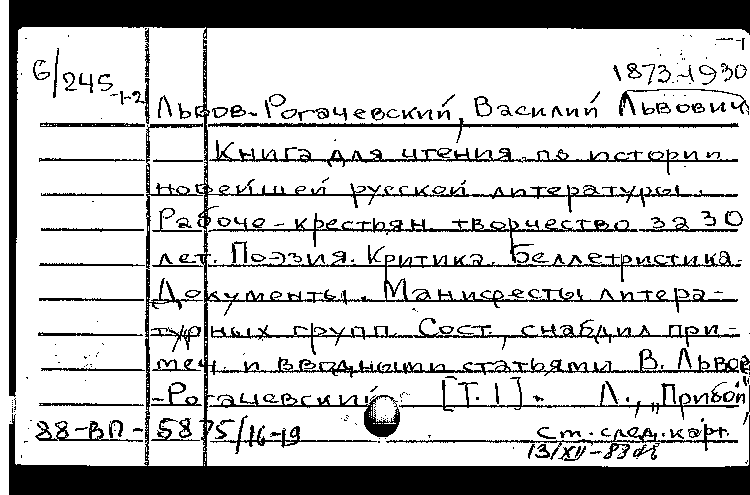 1873-1930
6/245-1-2
Львов-Рогачевский, Василий Львович
Книга для чтения по истории
новейшей русской литературы.
Рабоче-крестьян. творчество за 30
лет. Поэзия. Критика. Беллетристика.
Документы. Манифесты литера-
турных групп. Сост., снабдил при-
меч. и вводными статьями В. Львов
-Рогачевский [Т. 1]. Л., „Прибой",
88-ВП-5875/16-19 ст. след. карт.
13/XII-83